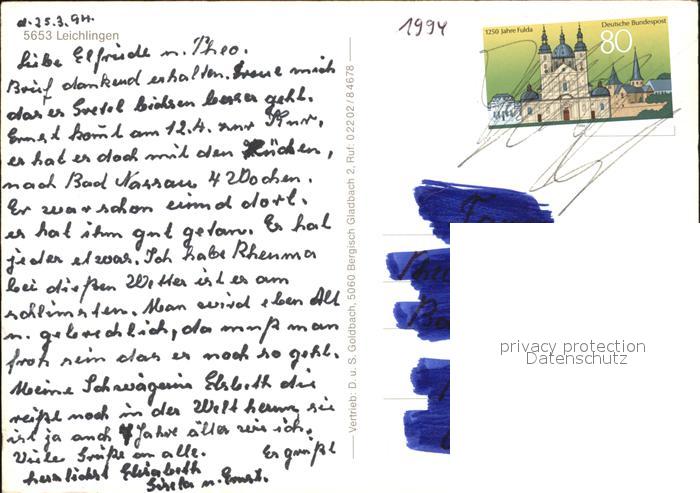 d. 25.3.94.
5653 Leichlingen
Liebe Elfriede u. Theo.
Brief dankend erhalten. Freue mich
das es Gretel bißsen besser geht.
Ernst komt am 12.4. zur Kur,
es hat es doch mit den Rücken,
nach Bad Nassau 4 Wochen.
Er war schon einmd dort.
es hat ihm gut getan. Es hat
jeder etwas. Ich habe Rheuma
bei dießen Wetter ist es am
schlimsten. Man wird eben Alt
u. gebrechlich, da muß man
froh sein das es noch so geht.
Meine Schwägerin Elsbeth die
reißt noch in der Welt herum, sie
ist ja auch Jahre älter wie ich.
Viele Grüße an alle. Es grüßt
herzlichst Elisabeth
Gisela u. Ernst.
Vertrieb: D. u. S. Goldbach, 5060 Bergisch Gladbach 2, Ruf: 02202/84678
1994
1250 Jahre Fulda
Deutsche Bundespost
80
privacy protection
Datenschutz